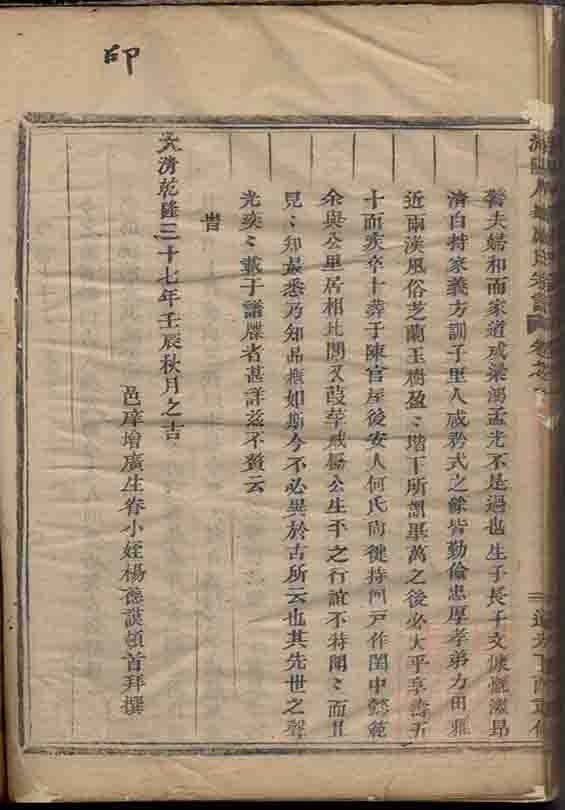 印
醫夫婦和而家道成梁鴻孟光不是過也生子長千文慷慨激昂
清白持家義方訓子里人咸矜式之餘皆勤儉忠厚孝弟力田雅
近兩漢風俗芝蘭玉樹盈〻堦下所謂畢萬之後必大乎享壽五
十而疾卒十葬于陳官屋後安人何氏尚健持門戸作閨中懿範
余與公里居相比閭又葭莩戚楊公生平之行誼不特聞〻而且
見〻知最悉乃知品概如斯今不必異於古所云也其先世之聲
光奕〻載于譜牒者甚詳兹不贅云
旹
大清乾隆三十七年壬辰秋月之吉
邑庠增廣生眷小姪楊德謨頓首拜撰